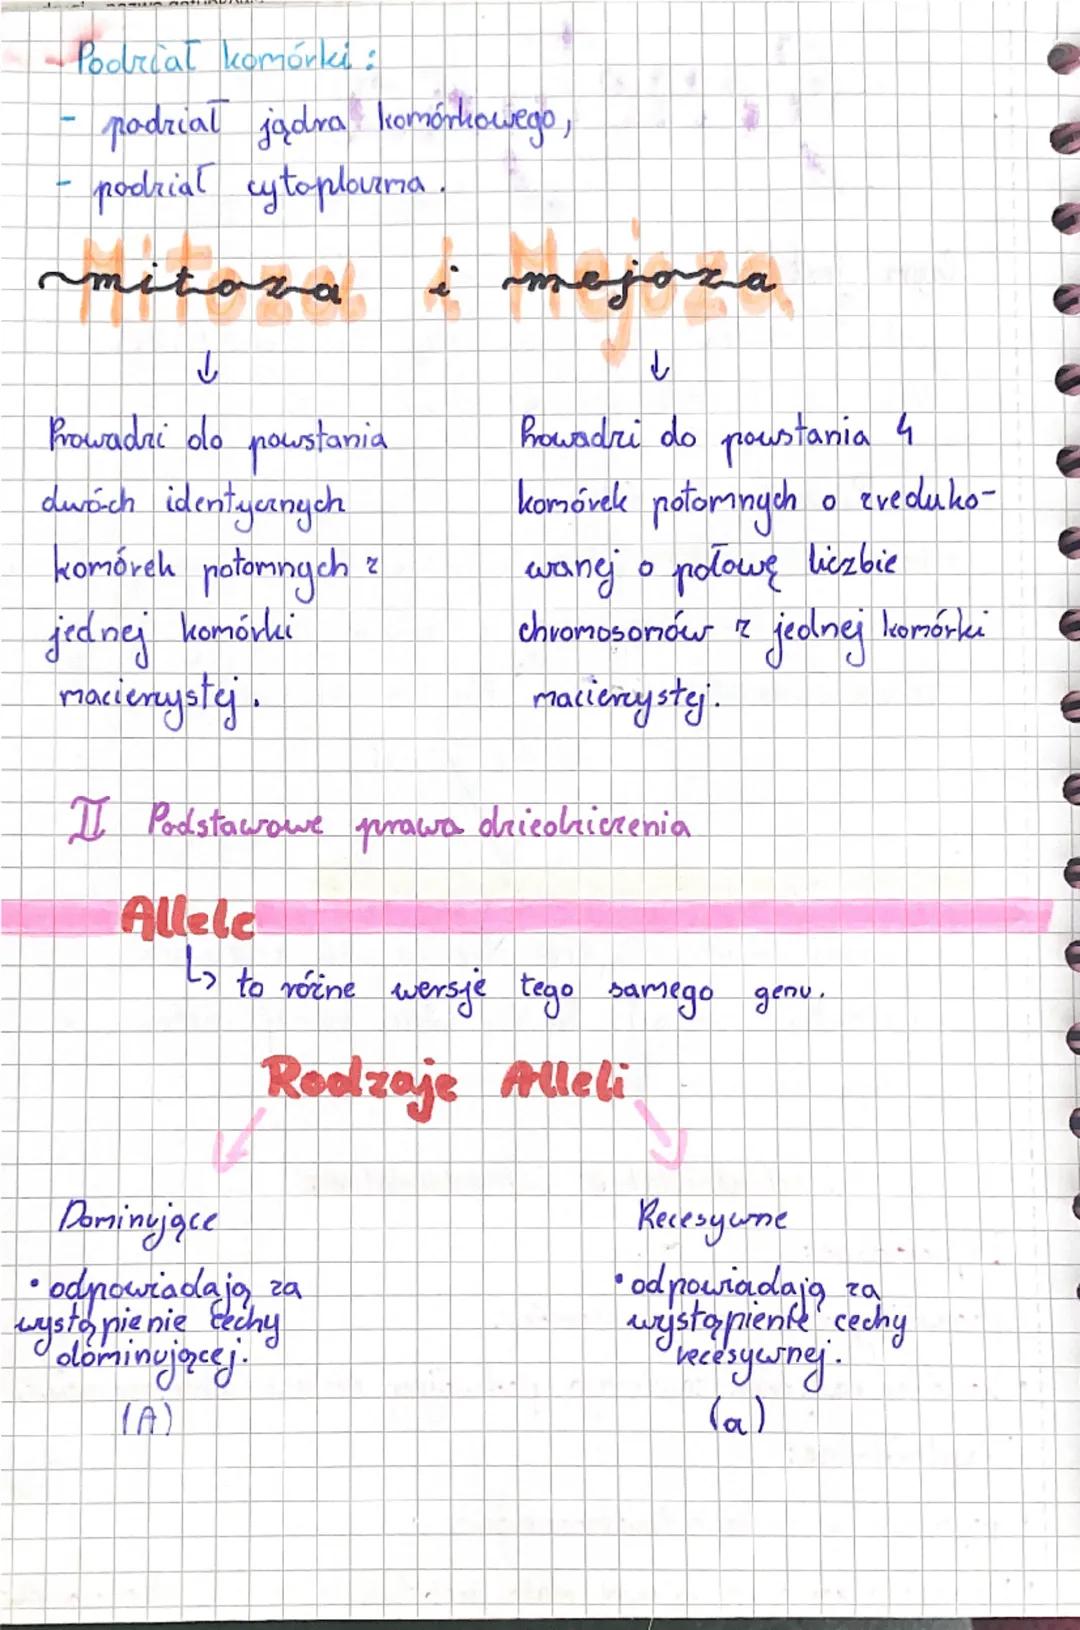 Podział komórki :
- podział jądra komórkowego,
- podział cytoplazma.
Mitoza i Mejoza
mitoza i mejoza
↓ ↓
Prowadzi do powstania
dwóch identycznych
komórek potomnych z
jednej komórki
macierzystej.
Prowadzi do powstania 4
komórek potomnych o zreduko-
wanej o połowę liczbie
chromosomów z jednej komórki
macierzystej.
II Podstawowe prawa dziedziczenia
Allele
↳ to różne wersje tego samego genu.
Rodzaje Alleli
Dominujące
• odpowiadają za
wystąpienie cechy
dominującej.
(A)
Recesywne
• odpowiadają za
wystąpienie cechy
recesywnej.
(a)